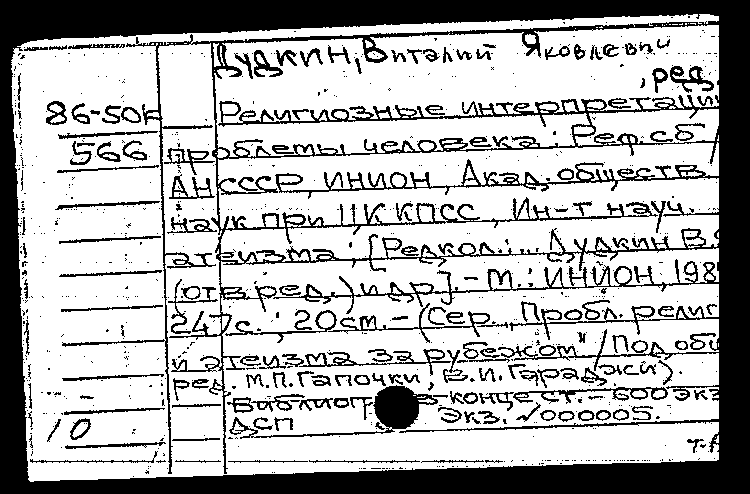 Дудкин, Виталий Яковлевич
, ред.
86-50к Религиозные интерпретации
566 проблемы человека: Реф. сб /
АН СССР, ИНИОН, Акад. обществ.
наук при ЦК КПСС, Ин-т науч.
атеизма; [Редкол.: ... Дудкин В.Я
(отв. ред.) и др.]. - М.: ИНИОН, 198
247 с.; 20 см. - (Сер. „Пробл. религ
и атеизма за рубежом" / Под общ
ред. М.П. Гапочки, В.И. Гараджи).
Библиогр. в конце ст. - 600 экз
ДСП Экз. ✓000005.
10